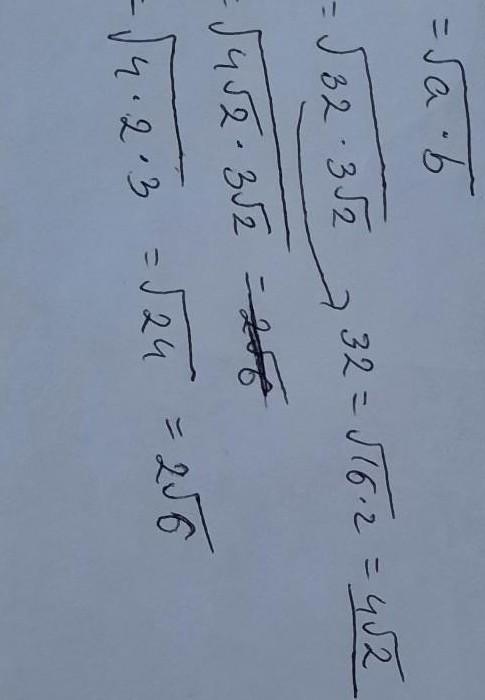 = √a · b
= √32 · 3√2
32 = √16 · 2 = 4√2
= √4√2 · 3√2 =
= √4 · 2 · 3 = √24 = 2√6